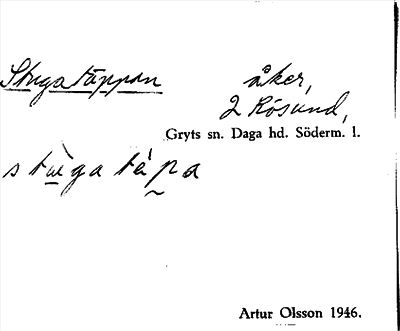 Stugatäppan åker,
2 Rösund,
Gryts sn. Daga hd. Söderm. l.
stùga tàpa
Artur Olsson 1946.